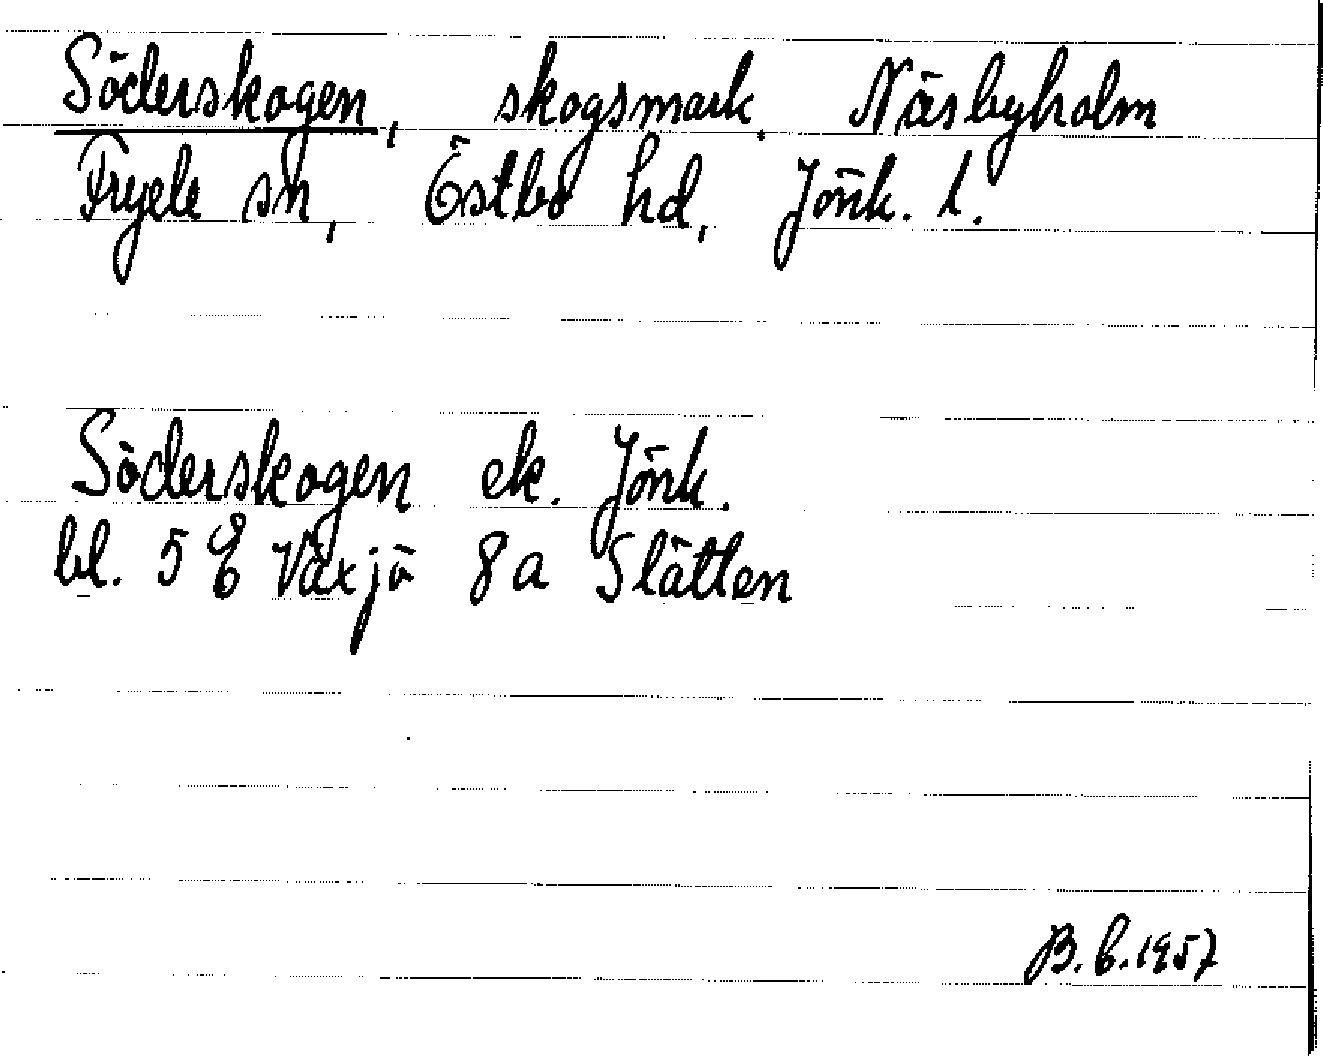 Söderskogen, skogsmark. Näsbyholm
Fryele sn, Östbo hd, Jönk. l.
Söderskogen ek. Jönk.
bl. 5 E Växjö 8a Slätten
B.b.1957